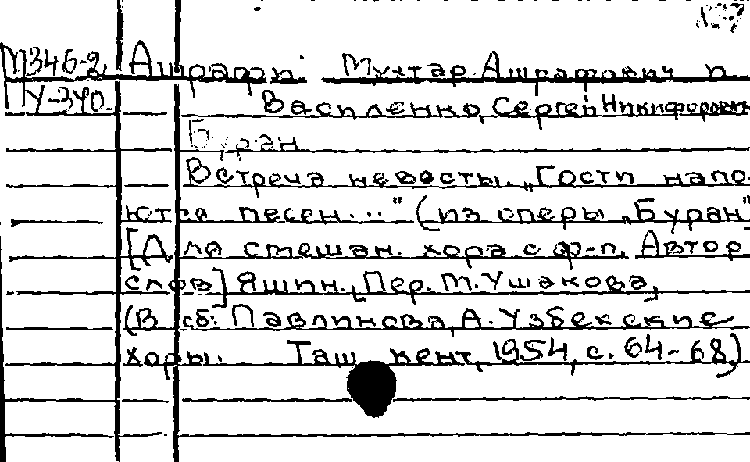 М346-2 Ашрафи. Мухтар Ашрафович и
ПУ-340. Василенко, Сергей Никифорович
Буран
Встреча невесты. „Гости напо-
ются песен..." (из оперы „Буран"
[Для смешан. хора с ф-п. Автор
слов] Яшин. [Пер. М. Ушакова,
(В сб: Павлинова, А. Узбекские
хоры. Ташкент, 1954, с. 64-68)